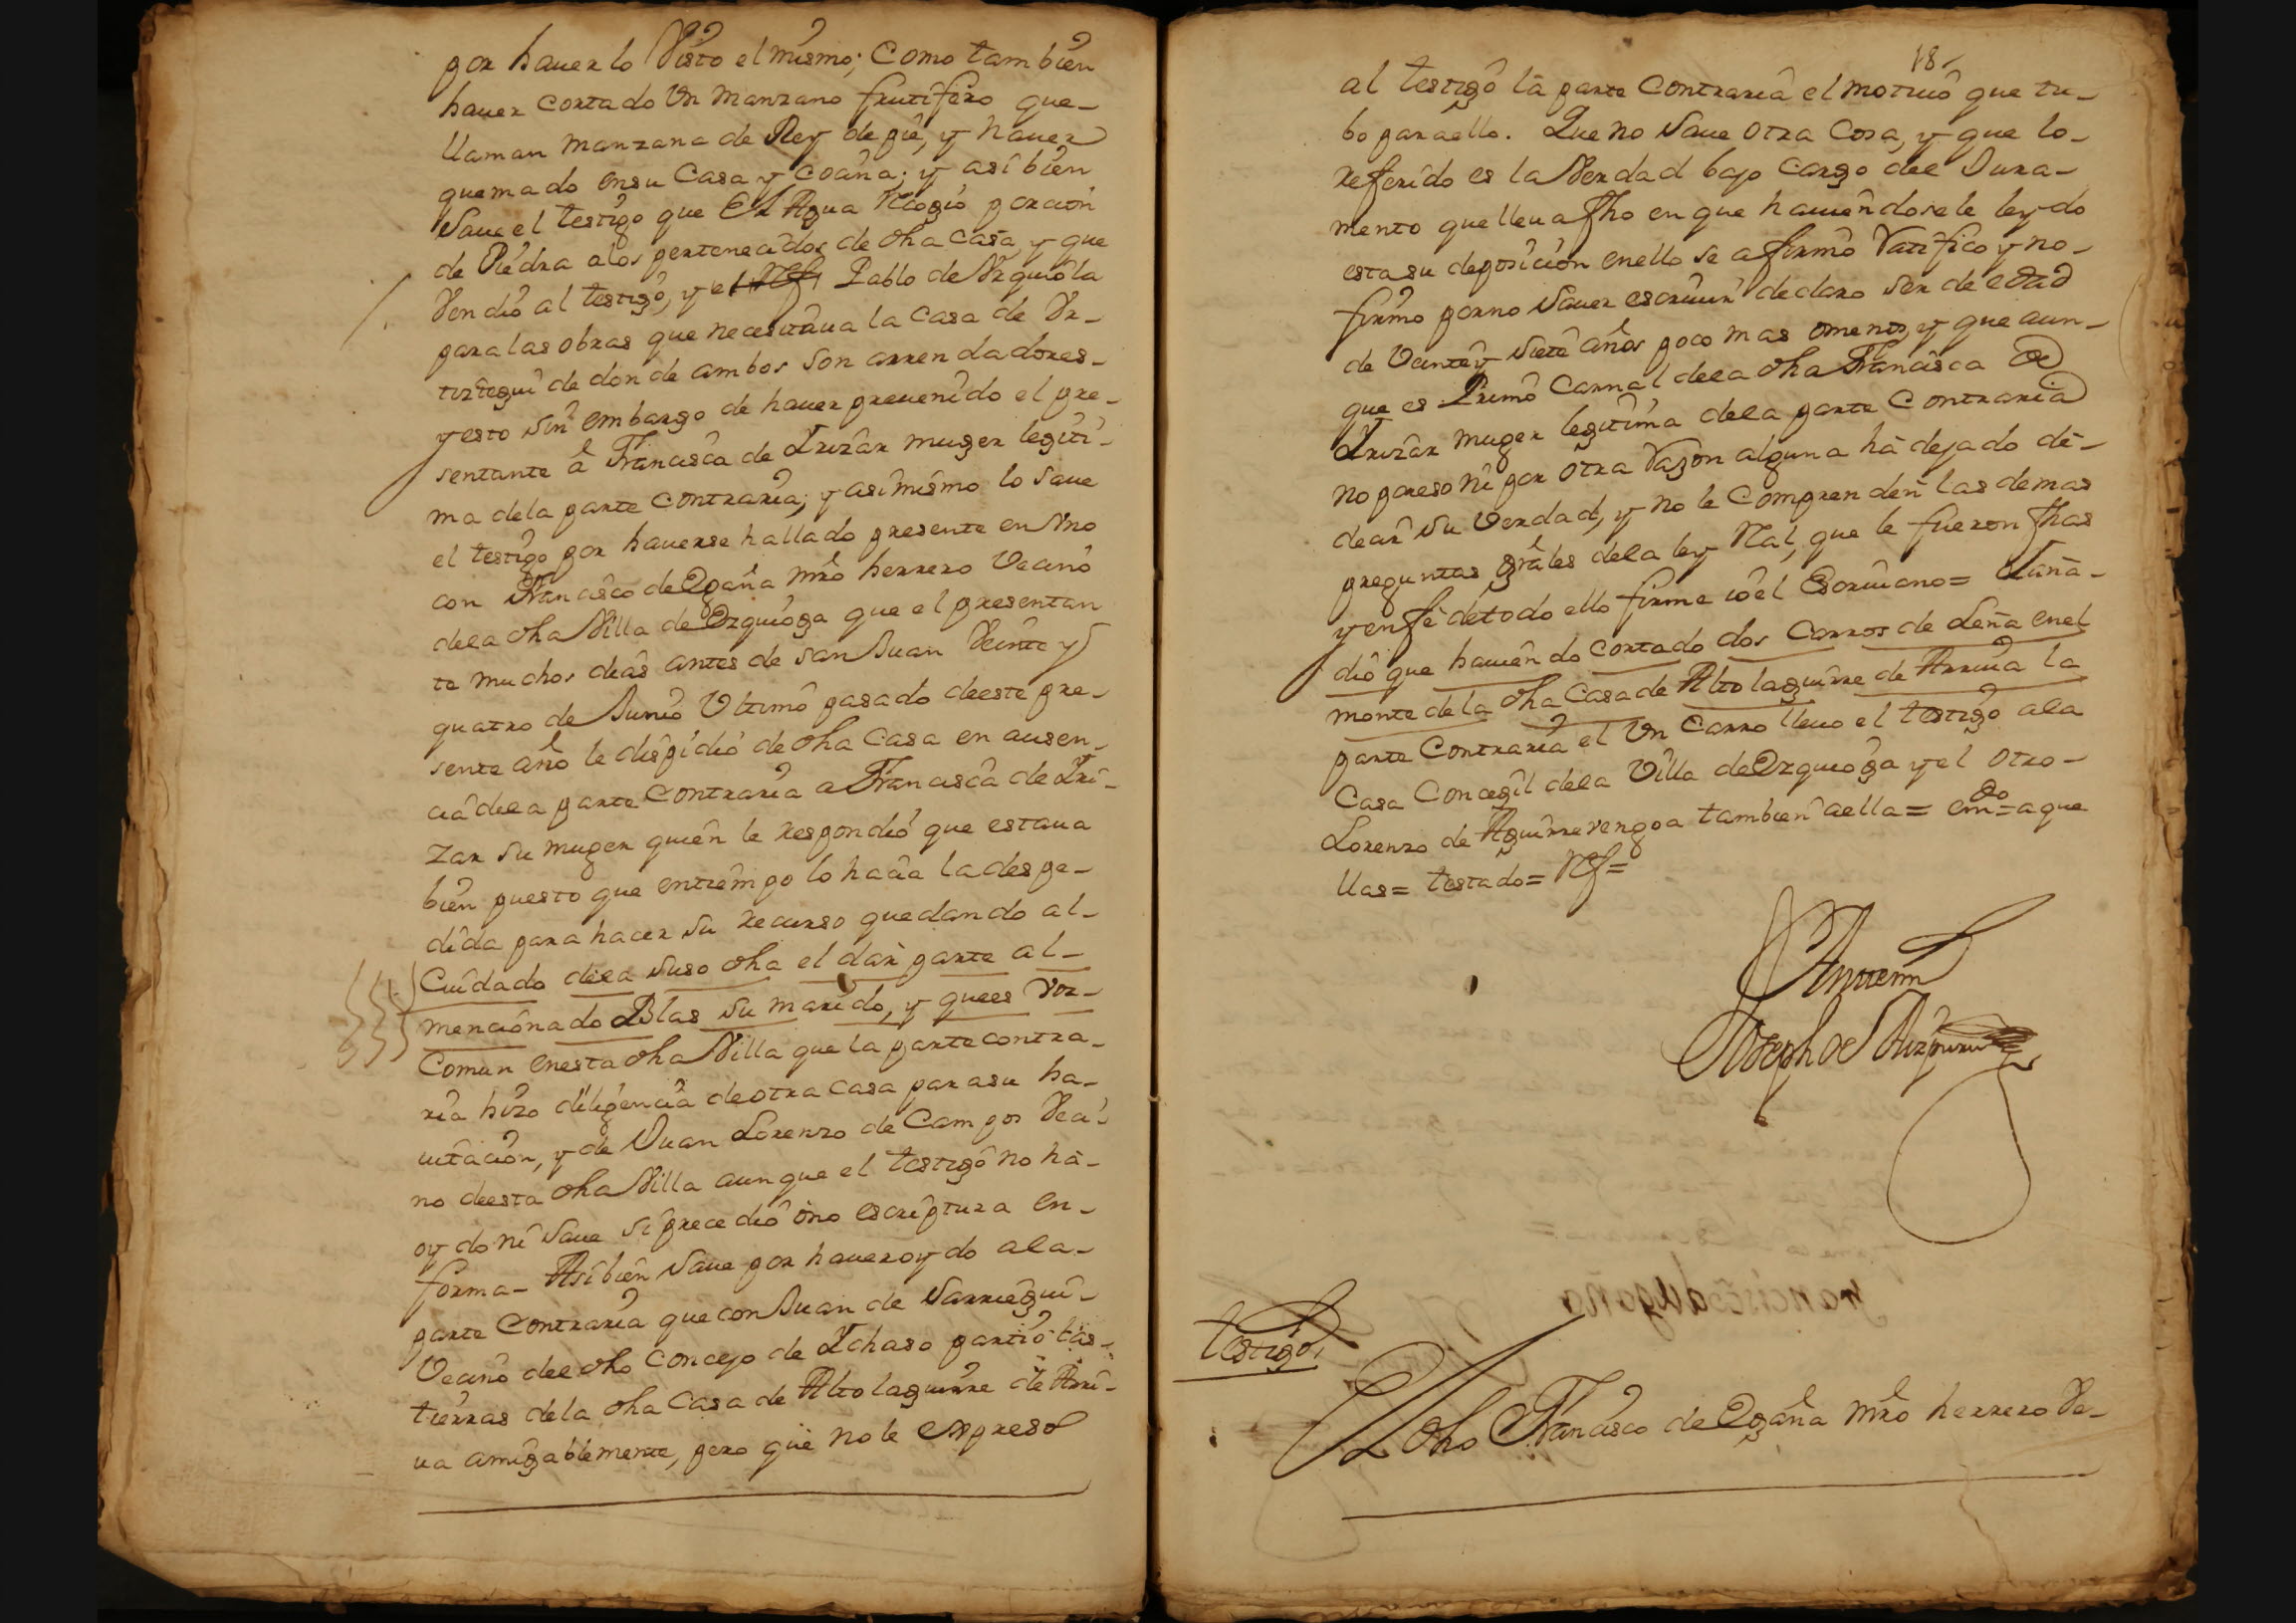 por hauer lo Visto el mismo; Como tambien
hauer cortado Vn manzano frutifero que-
llaman manzana de Rey de pie, y hauer
quemado ensu Casa y coçina; y asi bien
Saue el testigo que El Agua Recogió porcion
de Piedra alos pertenecidos de dha casa, y que
Vendió al testigo, y el Pablo de Vrquiola
para las obras que necesitaua la casa de Vr-
tiztegui de donde ambos son arrendadores-
y esto sin embargo de hauer preuenido el pre-
sentante â Francisca de Yrizar muger legiti-
ma dela parte contraria; y asimismo lo saue
el testigo por hauerse hallado presente en Vno
con Francisco de Ogaña mro herrero Vecino
dela dha Villa de Ezquioga que el presentan
te muchos dias antes de san Juan Veinte y
quatro de Junio Vltimo pasado deeste pre-
sente año le dispidió de dha Casa en ausen-
cia dela parte contraria a Francisca de Yri-
zar su muger quien le respondió que estaua
bien puesto que entiempo lo hacia la despe-
dida para hacer su recurso quedando al-
Cuidado dela suso dha el dar parte al-
mencionado Blas su marido, y quees voz-
Comun enesta dha Villa que la parte contra-
ria hizo diligencia deotra casa parasu ha-
uitacion, y de Juan Lorenzo de Campos Veci-
no deesta dha Villa aunque el testigo no ha-
oydo ni saue si precedió ono escriptura en-
forma- Asibien saue por haueroydo ala-
parte Contraria que con Juan de Sarriegui-
Vecino del dho Concejo de Ychaso partió las-
tierras dela dha Casa de Altolaguirre de Arri-
ua amigablemente, pero que no le expreso
18
al testigo la parte Contraria el motiuo que tu-
bo paraello. Que no saue otra cosa, y que lo-
referido es la Verdad bajo cargo del Jura-
mento que lleua fho en que hauiendosele leydo
esta su deposicion enello se afirmó Ratificó y no-
firmó porno sauer escriuir declaro ser de edad
de Veinte y siete años poco mas omenos, y que aun-
que es Primo Carnal dela dha Francisca de
Yrizar muger legitima dela parte Contraria
no poreso ni por otra Razon alguna há dejado de-
decir su Verdad, y no le comprenden las demas
preguntas grales dela ley Real, que le fueron fhas
y enfe detodo ello firme io el Escriuano= Aña-
dió que hauiendo cortado dos Carros de Leña enel
monte dela dha Casa de Altolaguirre de Arriua la
parte Contraria el Vn Carro lleuo el testigo ala
Casa Concegil dela Villa de Ezquioga y el otro-
Lorenzo de Aguirrerengoa tambien aella= emdo=aque
llas= testado= Ref=
Antemi
Joseph de Aizpuru
Testigo
El dho Francisco de Ogaña mro herrero Ve-